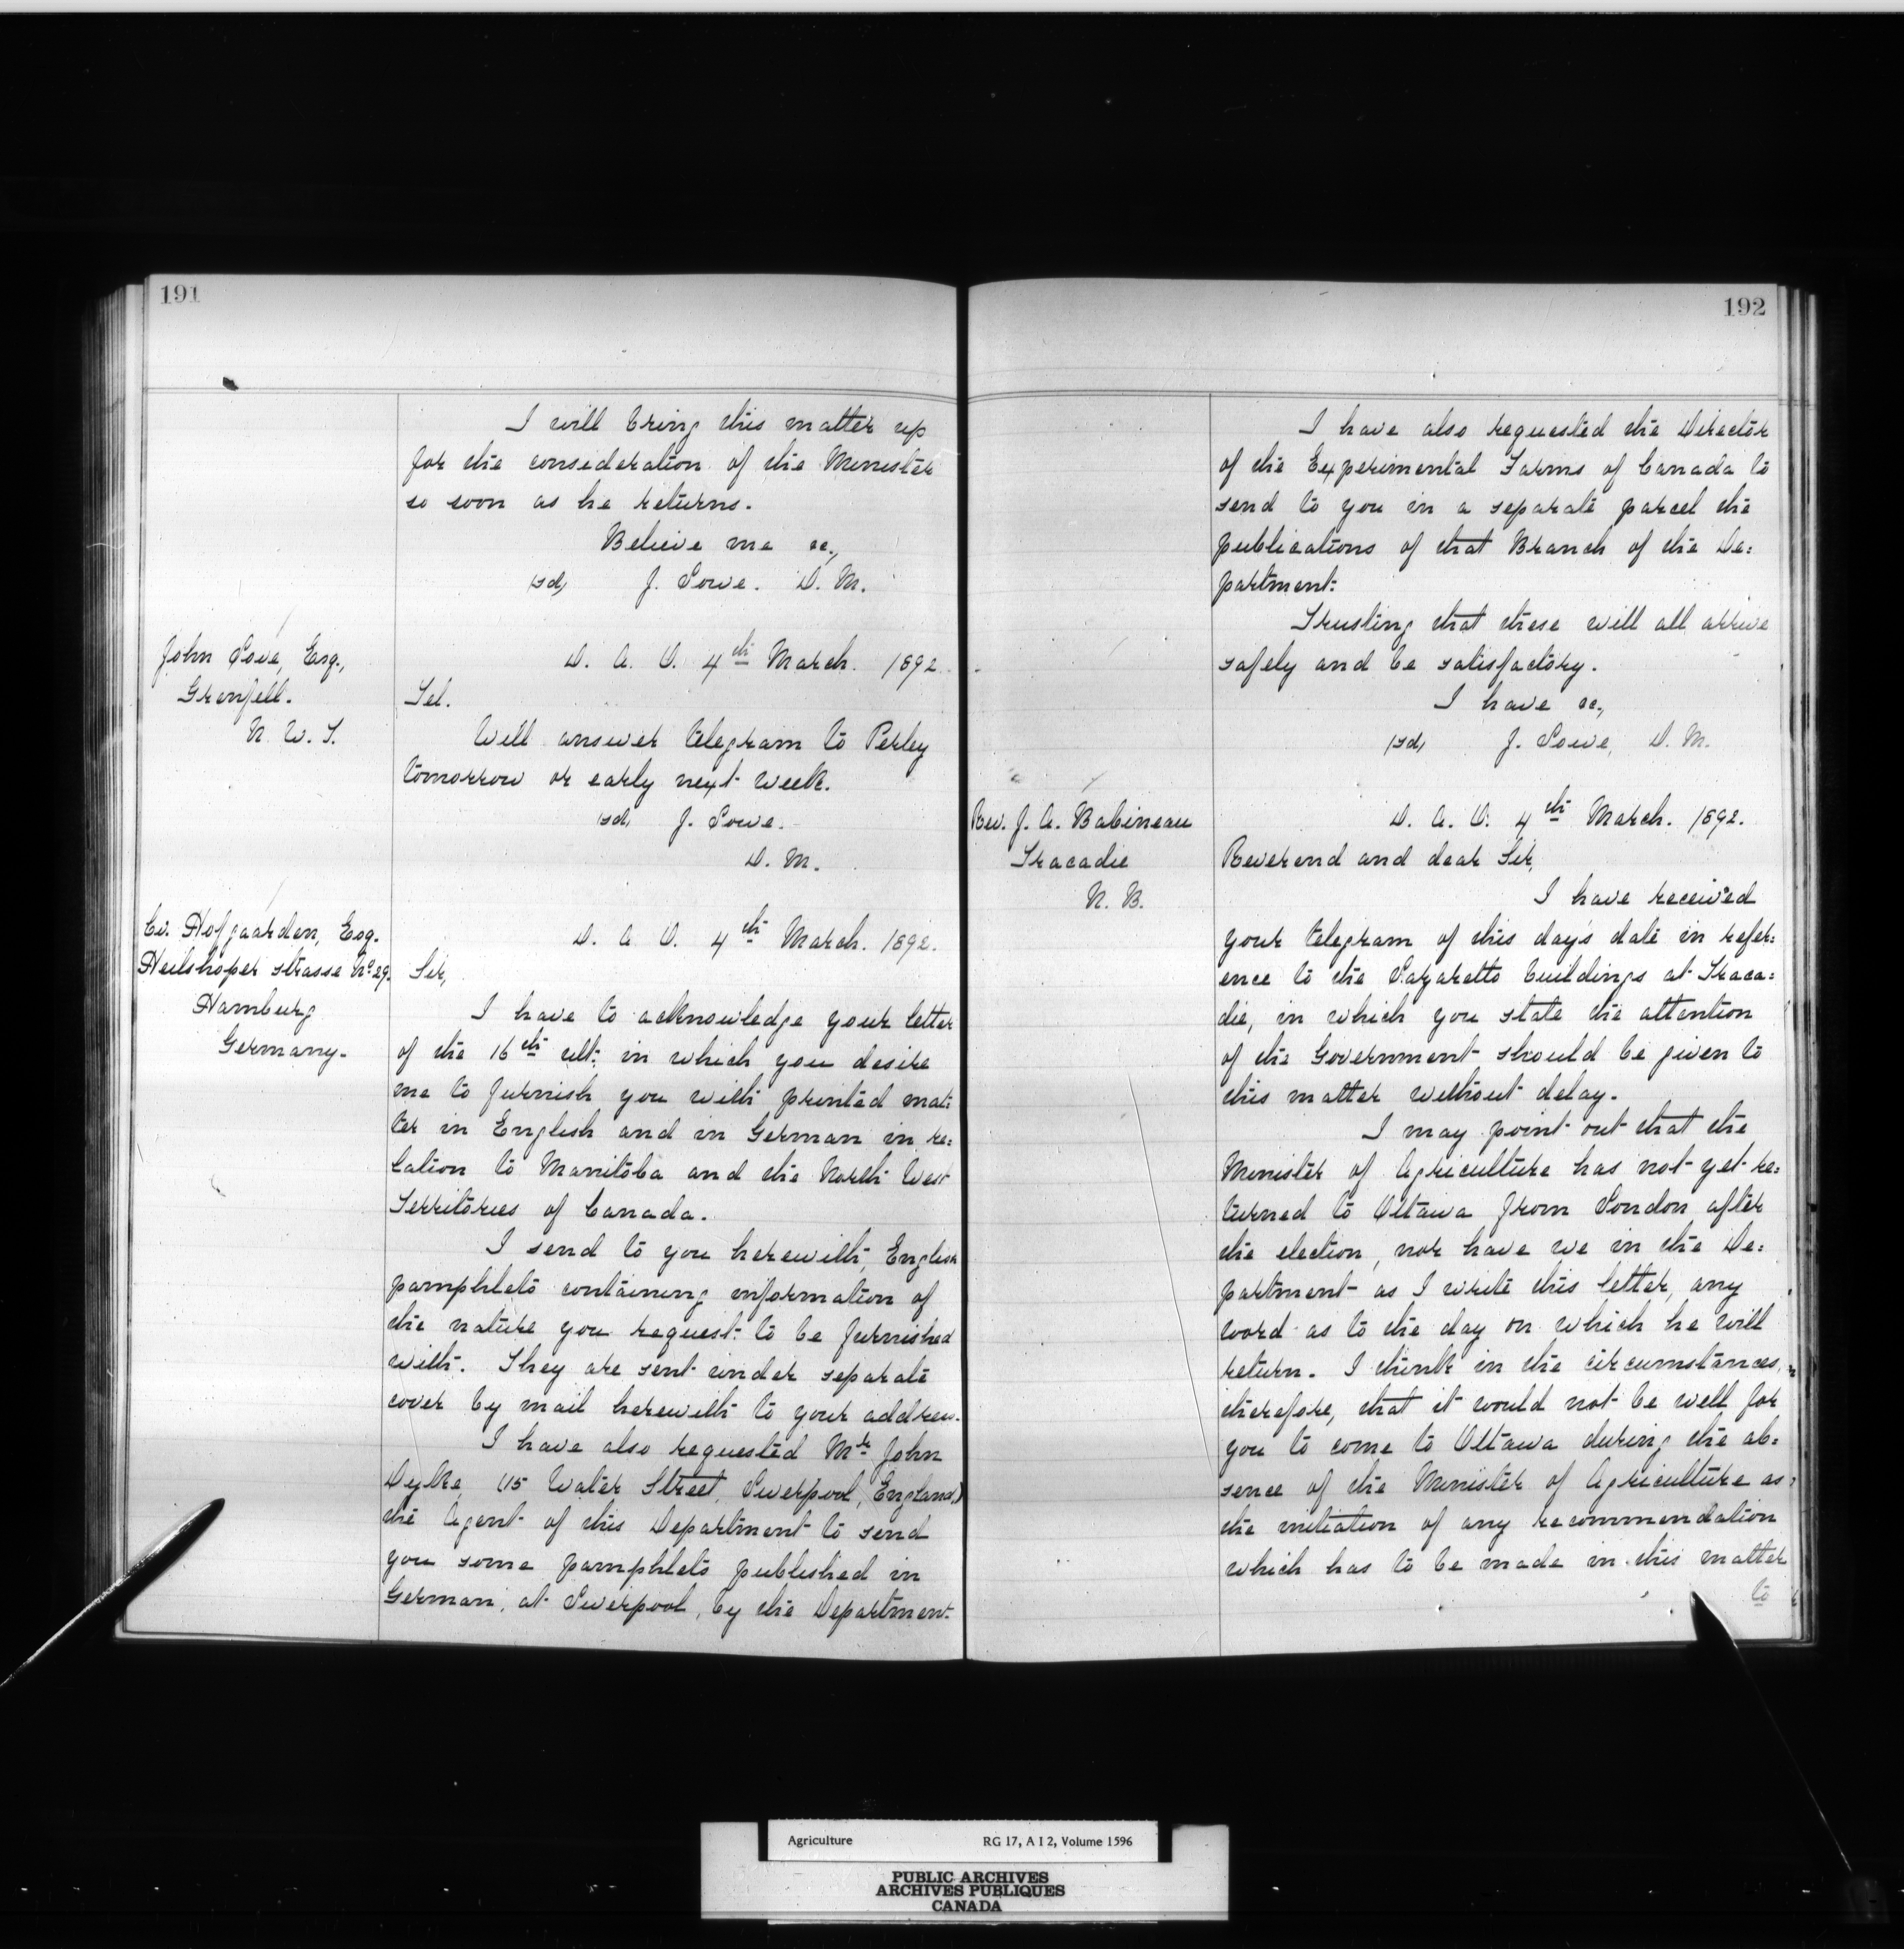 191
I will bring this matter up
for the consideration of the Minister
so soon as he returns.
Believe me &c.,
(sd) J. Lowe. D. M.
John Love, Esq.,
Grenfell.
N. W. T.
D. A. O. 4th March. 1892
Tel.
Will answer telegram to Perley
tomorrow or early next week.
(sd) J. Lowe.
D. M.
Hofgaarden, Esq.
strasse No 29.
Hamburg
Germany.
D. A. O. 4th March. 1892.
Sir,
I have to acknowledge your letter
of the 16th ult: in which you desire
me to furnish you with printed mat:
ter in English and in German in re:
lation to Manitoba and the North West
Territories of Canada.
I send to you herewith, English
pamphlets containing information of
the nature you request to be furnished
with. They are sent under separate
cover by mail herewith to your address.
I have also requested Mr John
Dyke, (15 Water Street, Liverpool, England,)
the Agent of this Department to send
you some pamphlets published in
German, at Liverpool, by the Department.
192
I have also requested the Director
of the Experimental Farms of Canada to
send to you in a separate parcel the
publications of that Branch of the De:
partment.
Trusting that these will all arrive
safely and be satisfactory.
I have &c.,
(sd) J. Lowe, D. M.
Rev. J. A. Babineau
Tracadie
N. B.
D. A. O. 4th March. 1892.
Reverend and dear Sir,
I have received
your telegram of this day's date in refer:
ence to the Lazaretto buildings at Traca:
die, in which you state the attention
of the Government should be given to
this matter without delay.
I may point out that the
Minister of Agriculture has not yet re:
turned to Ottawa from London after
the election, nor have we in the De:
partment as I write this letter, any
word as to the day on which he will
return. I think in the circumstances,
therefore, that it would not be well for
you to come to Ottawa during the ab:
sence of the Minister of Agriculture as
the initiation of any recommendation
which has to be made in this matter
to
Agriculture RG 17, A I 2, Volume 1596
PUBLIC ARCHIVES
ARCHIVES PUBLIQUES
CANADA